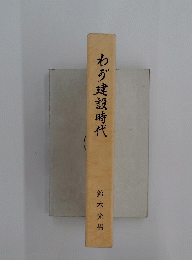 わが建設時代
鈴木